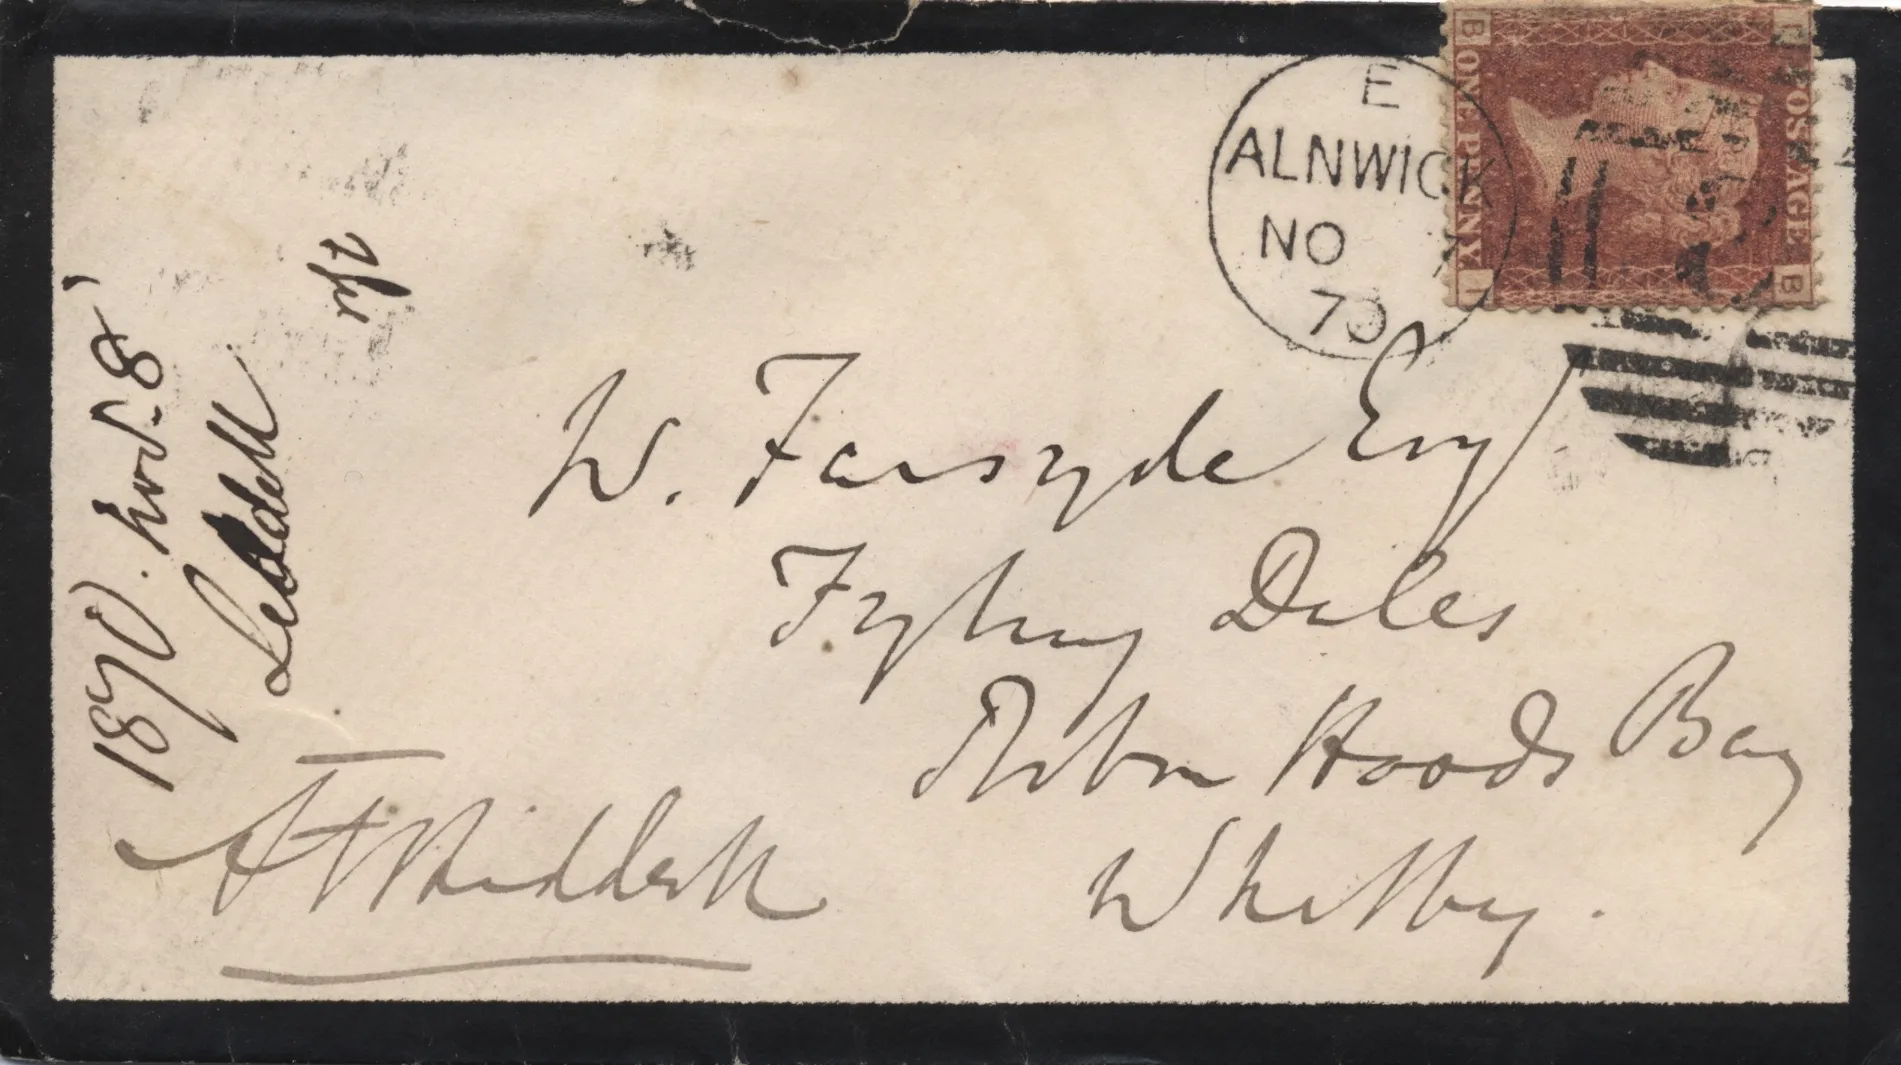 E
ALNWICK
NO 7
70
B
ONE PENNY
I
POSTAGE
B
W. Farsyde Esq
Fyling Dales
Robin Hoods Bay
Whitby.
1870. Nov. 8
Liddell